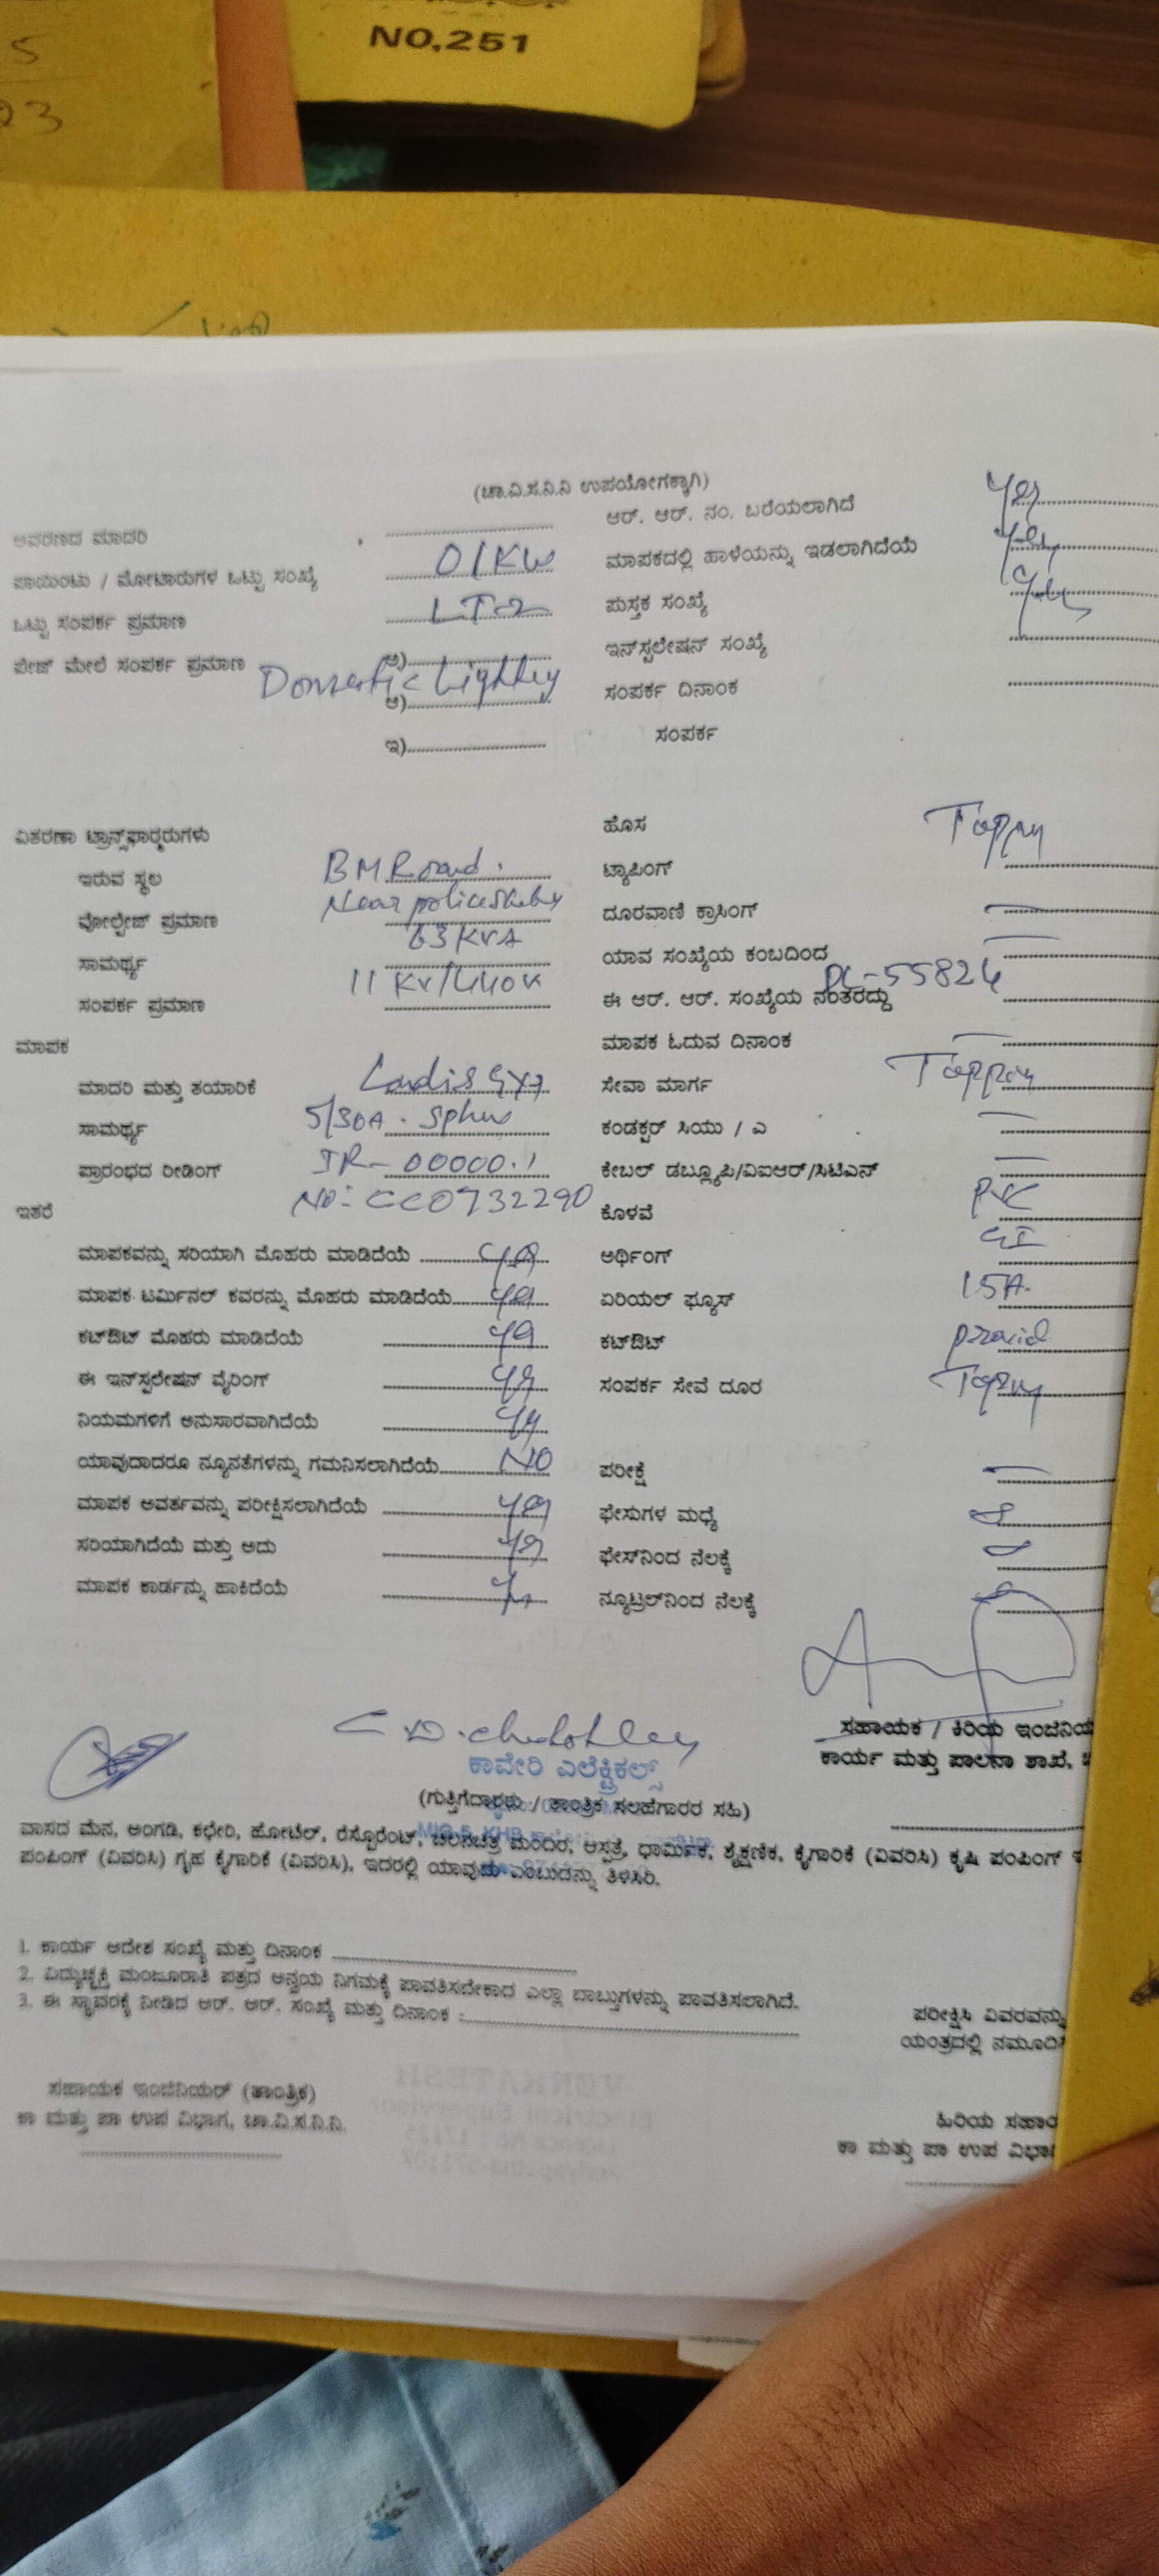 NO.251
5
23
(ಚಾ.ವಿ.ಸ.ನಿ.ನಿ ಉಪಯೋಗಕ್ಕಾಗಿ)
ಆವರಣದ ಮಾದರಿ ಆರ್. ಆರ್. ನಂ. ಬರೆಯಲಾಗಿದೆ yes
ಪಾಯಿಂಟು / ಮೋಟಾರುಗಳ ಒಟ್ಟು ಸಂಖ್ಯೆ 01KW ಮಾಪಕದಲ್ಲಿ ಹಾಳೆಯನ್ನು ಇಡಲಾಗಿದೆಯೆ yes
ಒಟ್ಟು ಸಂಪರ್ಕ ಪ್ರಮಾಣ LT-2 ಪುಸ್ತಕ ಸಂಖ್ಯೆ yes
ಪೇಜ್ ಮೇಲೆ ಸಂಪರ್ಕ ಪ್ರಮಾಣ ಅ) ಇನ್‌ಸ್ಟಲೇಷನ್ ಸಂಖ್ಯೆ
Domestic Lighting ಆ) ಸಂಪರ್ಕ ದಿನಾಂಕ
ಇ) ಸಂಪರ್ಕ
ವಿತರಣಾ ಟ್ರಾನ್ಸ್‌ಫಾರ್ಮರುಗಳು ಹೊಸ Tapping
ಇರುವ ಸ್ಥಳ BM Road. ಟ್ಯಾಪಿಂಗ್
ವೋಲ್ಟೇಜ್ ಪ್ರಮಾಣ Near police ದೂರವಾಣಿ ಕ್ರಾಸಿಂಗ್ —
ಸಾಮರ್ಥ್ಯ 63 KVA ಯಾವ ಸಂಖ್ಯೆಯ ಕಂಬದಿಂದ —
ಸಂಪರ್ಕ ಪ್ರಮಾಣ 11 KV/440V ಈ ಆರ್. ಆರ್. ಸಂಖ್ಯೆಯ ನಂತರದ್ದು PL-55824
ಮಾಪಕ ಮಾಪಕ ಓದುವ ದಿನಾಂಕ —
ಮಾದರಿ ಮತ್ತು ತಯಾರಿಕೆ ಸೇವಾ ಮಾರ್ಗ Tapping
ಸಾಮರ್ಥ್ಯ 5/30A. ಕಂಡಕ್ಟರ್ ಸಿಯು / ಎ —
ಪ್ರಾರಂಭದ ರೀಡಿಂಗ್ IR-00000.1 ಕೇಬಲ್ ಡಬ್ಲ್ಯೂಪಿ/ವಿಐಆರ್/ಸಿಟಿಎಸ್ —
ಇತರೆ No: CC0732290 ಕೊಳವೆ PVC
ಮಾಪಕವನ್ನು ಸರಿಯಾಗಿ ಮೊಹರು ಮಾಡಿದೆಯೆ yes ಅರ್ಥಿಂಗ್ GI
ಮಾಪಕ ಟರ್ಮಿನಲ್ ಕವರನ್ನು ಮೊಹರು ಮಾಡಿದೆಯೆ yes ಏರಿಯಲ್ ಫ್ಯೂಸ್ 15A.
ಕಟ್‌ಔಟ್ ಮೊಹರು ಮಾಡಿದೆಯೆ yes ಕಟ್‌ಔಟ್ provid
ಈ ಇನ್‌ಸ್ಟಲೇಷನ್ ವೈರಿಂಗ್ yes ಸಂಪರ್ಕ ಸೇವೆ ದೂರ Tapping
ನಿಯಮಗಳಿಗೆ ಅನುಸಾರವಾಗಿದೆಯೆ yes
ಯಾವುದಾದರೂ ನ್ಯೂನತೆಗಳನ್ನು ಗಮನಿಸಲಾಗಿದೆಯೆ NO ಪರೀಕ್ಷೆ —
ಮಾಪಕ ಅವರ್ತವನ್ನು ಪರೀಕ್ಷಿಸಲಾಗಿದೆಯೆ yes ಫೇಸುಗಳ ಮಧ್ಯೆ
ಸರಿಯಾಗಿದೆಯೆ ಮತ್ತು ಅದು yes ಫೇಸ್‌ನಿಂದ ನೆಲಕ್ಕೆ
ಮಾಪಕ ಕಾರ್ಡನ್ನು ಹಾಕಿದೆಯೆ yes ನ್ಯೂಟ್ರಲ್‌ನಿಂದ ನೆಲಕ್ಕೆ
ಸಹಾಯಕ / ಕಿರಿಯ ಇಂಜಿನಿಯ
ಕಾವೇರಿ ಎಲೆಕ್ಟ್ರಿಕಲ್ಸ್ ಕಾರ್ಯ ಮತ್ತು ಪಾಲನಾ ಶಾಖೆ,
(ಗುತ್ತಿಗೆದಾರರು / ತಾಂತ್ರಿಕ ಸಲಹೆಗಾರರ ಸಹಿ)
ವಾಸದ ಮೆನ, ಅಂಗಡಿ, ಕಛೇರಿ, ಹೋಟೆಲ್, ರೆಸ್ಟೋರೆಂಟ್, ಚಲನಚಿತ್ರ ಮಂದಿರ, ಆಸ್ಪತ್ರೆ, ಧಾರ್ಮಿಕ, ಶೈಕ್ಷಣಿಕ, ಕೈಗಾರಿಕೆ (ವಿವರಿಸಿ) ಕೃಷಿ ಪಂಪಿಂಗ್
ಪಂಪಿಂಗ್ (ವಿವರಿಸಿ) ಗೃಹ ಕೈಗಾರಿಕೆ (ವಿವರಿಸಿ), ಇದರಲ್ಲಿ ಯಾವುದು ಎಂಬುದನ್ನು ತಿಳಿಸಿರಿ.
1. ಕಾರ್ಯ ಆದೇಶ ಸಂಖ್ಯೆ ಮತ್ತು ದಿನಾಂಕ
2. ವಿದ್ಯುಚ್ಛಕ್ತಿ ಮಂಜೂರಾತಿ ಪತ್ರದ ಅನ್ವಯ ನಿಗಮಕ್ಕೆ ಪಾವತಿಸಬೇಕಾದ ಎಲ್ಲಾ ಬಾಬ್ತುಗಳನ್ನು ಪಾವತಿಸಲಾಗಿದೆ.
3. ಈ ಸ್ಥಾವರಕ್ಕೆ ನೀಡಿದ ಆರ್. ಆರ್. ಸಂಖ್ಯೆ ಮತ್ತು ದಿನಾಂಕ :
ಪರೀಕ್ಷಿಸಿ ವಿವರವನ್ನು
ಯಂತ್ರದಲ್ಲಿ ನಮೂದಿಸಿ
ಸಹಾಯಕ ಇಂಜಿನಿಯರ್ (ತಾಂತ್ರಿಕ)
ಕಾ ಮತ್ತು ಪಾ ಉಪ ವಿಭಾಗ, ಚಾ.ವಿ.ಸ.ನಿ.ನಿ.
ಹಿರಿಯ ಸಹಾಯ
ಕಾ ಮತ್ತು ಪಾ ಉಪ ವಿಭಾಗ